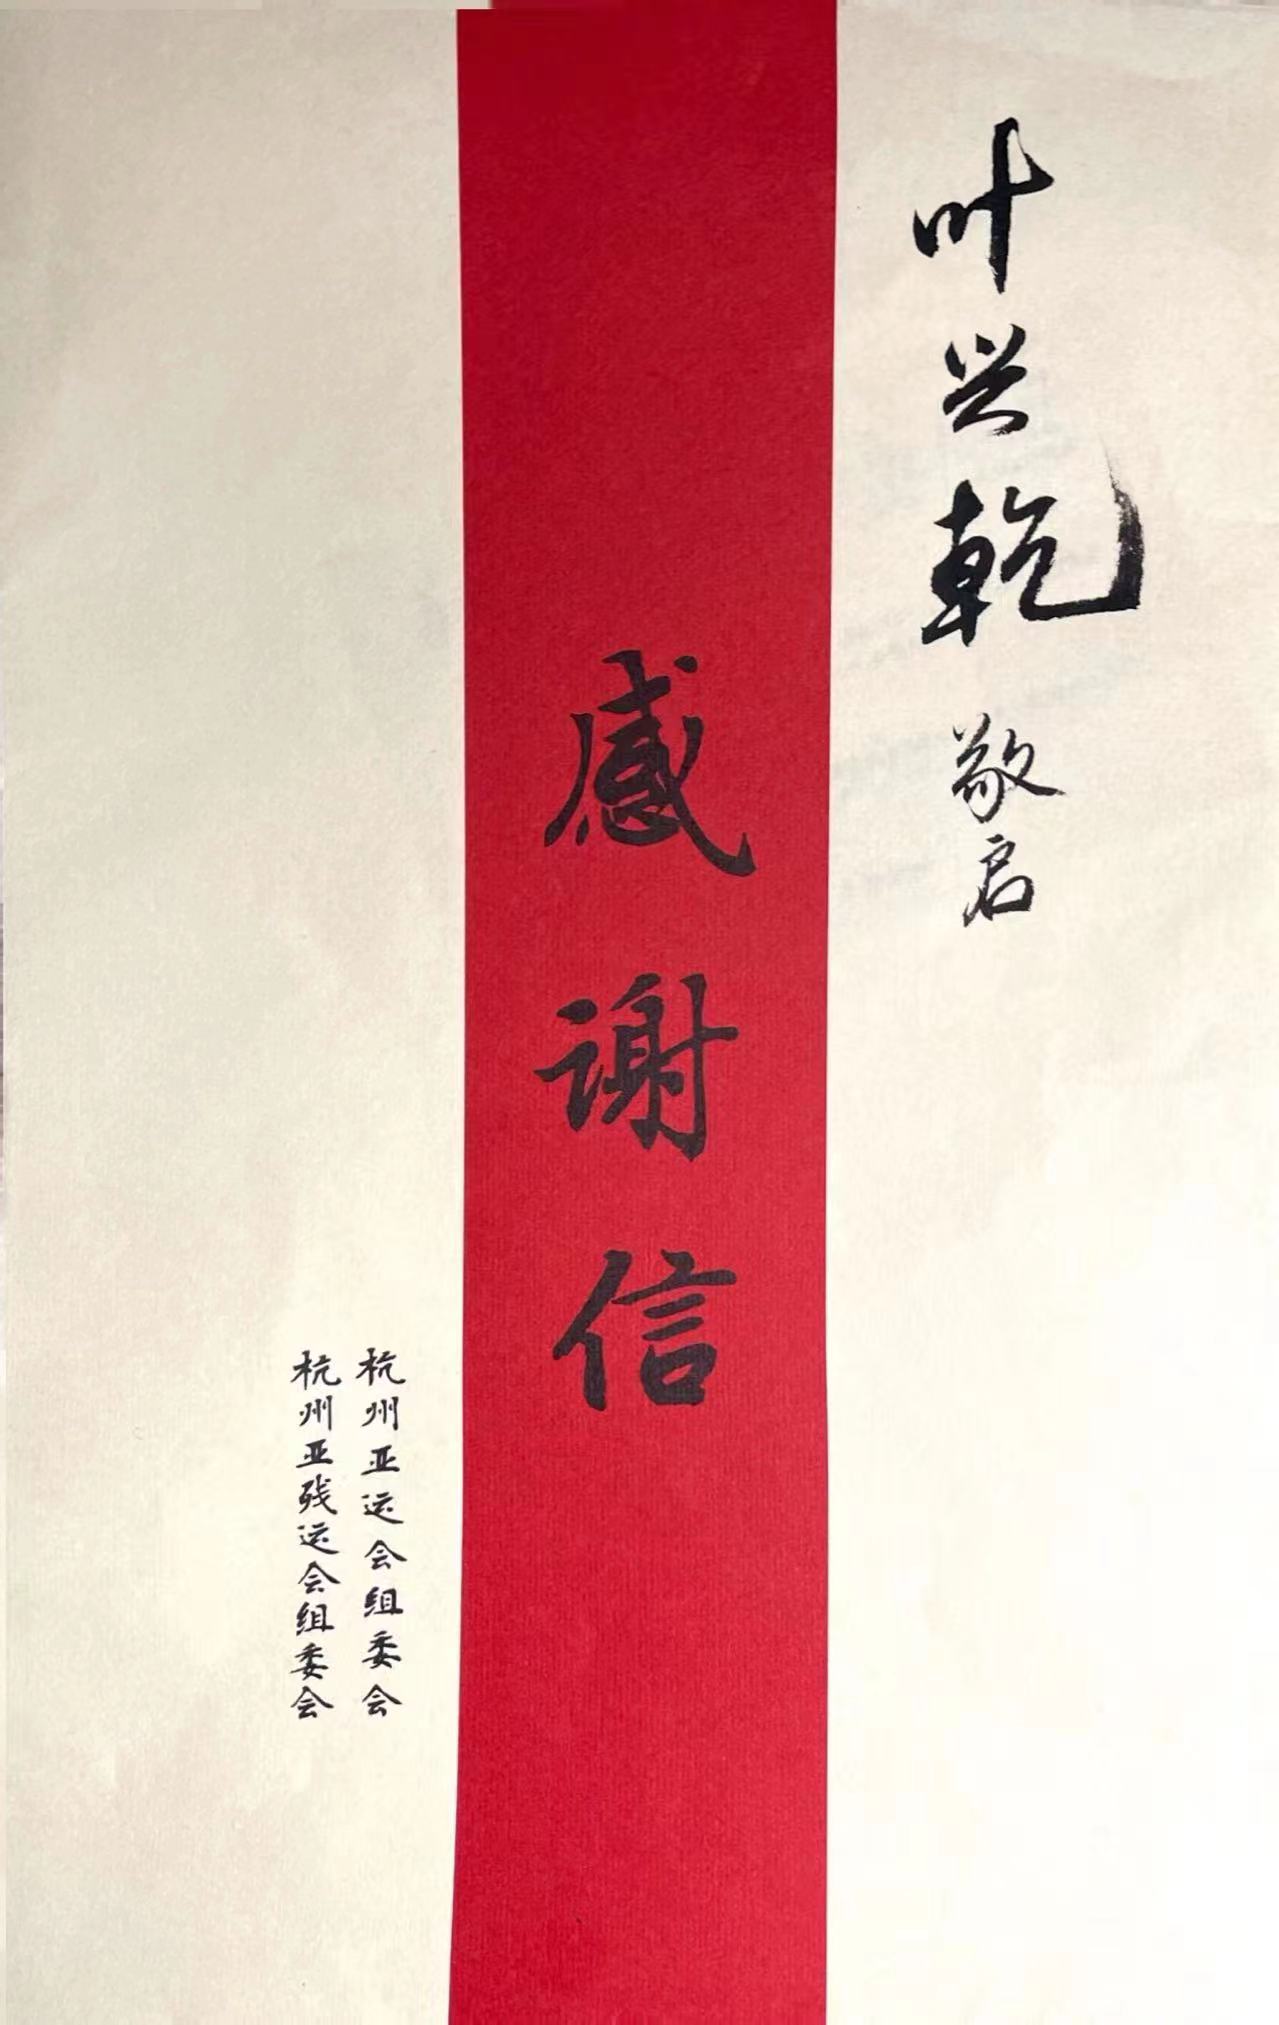 叶兴乾 敬启
感谢信
杭州亚运会组委会
杭州亚残运会组委会